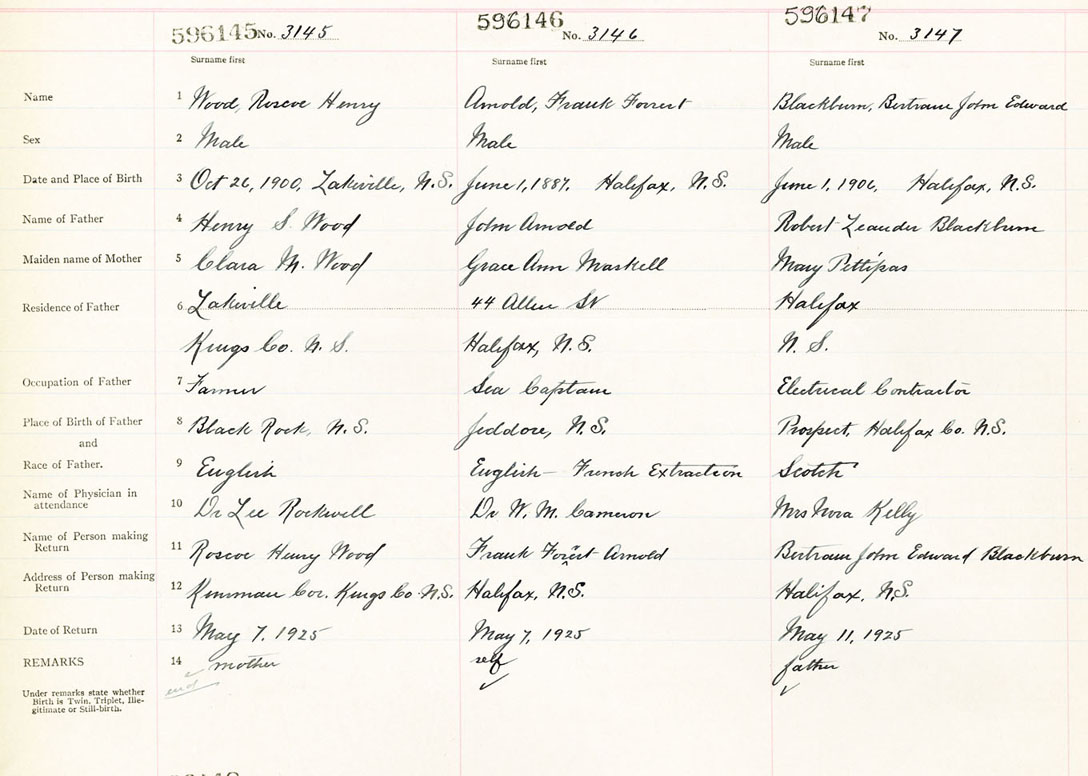 596145 No. 3145 596146 No. 3146 596147 No. 3147
Surname first Surname first Surname first
Name 1 Wood, Roscoe Henry Arnold, Frank Forrest Blackburn, Bertram John Edward
Sex 2 Male Male Male
Date and Place of Birth 3 Oct 26, 1900, Lakeville, N.S. June 1, 1887, Halifax, N.S. June 1, 1906, Halifax, N.S.
Name of Father 4 Henry S. Wood John Arnold Robert Leander Blackburn
Maiden name of Mother 5 Clara M. Wood Grace Ann Maskell Mary Pettipas
Residence of Father 6 Lakeville 44 Allen St Halifax
Kings Co. N. S. Halifax, N.S. N. S.
Occupation of Father 7 Farmer Sea Captain Electrical Contractor
Place of Birth of Father 8 Black Rock, N.S. Jeddore, N.S. Prospect, Halifax Co. N.S.
and
Race of Father. 9 English English – French Extraction Scotch
Name of Physician in
attendance 10 Dr Lee Rockwell Dr W. M. Cameron Mrs Nora Kelly
Name of Person making
Return 11 Roscoe Henry Wood Frank Forrest Arnold Bertram John Edward Blackburn
Address of Person making
Return 12 Kinsman Cor. Kings Co. N.S. Halifax, N.S. Halifax, N.S.
Date of Return 13 May 7, 1925 May 7, 1925 May 11, 1925
REMARKS 14 mother self father
Under remarks state whether
Birth is Twin, Triplet, Ille-
gitimate or Still-birth.